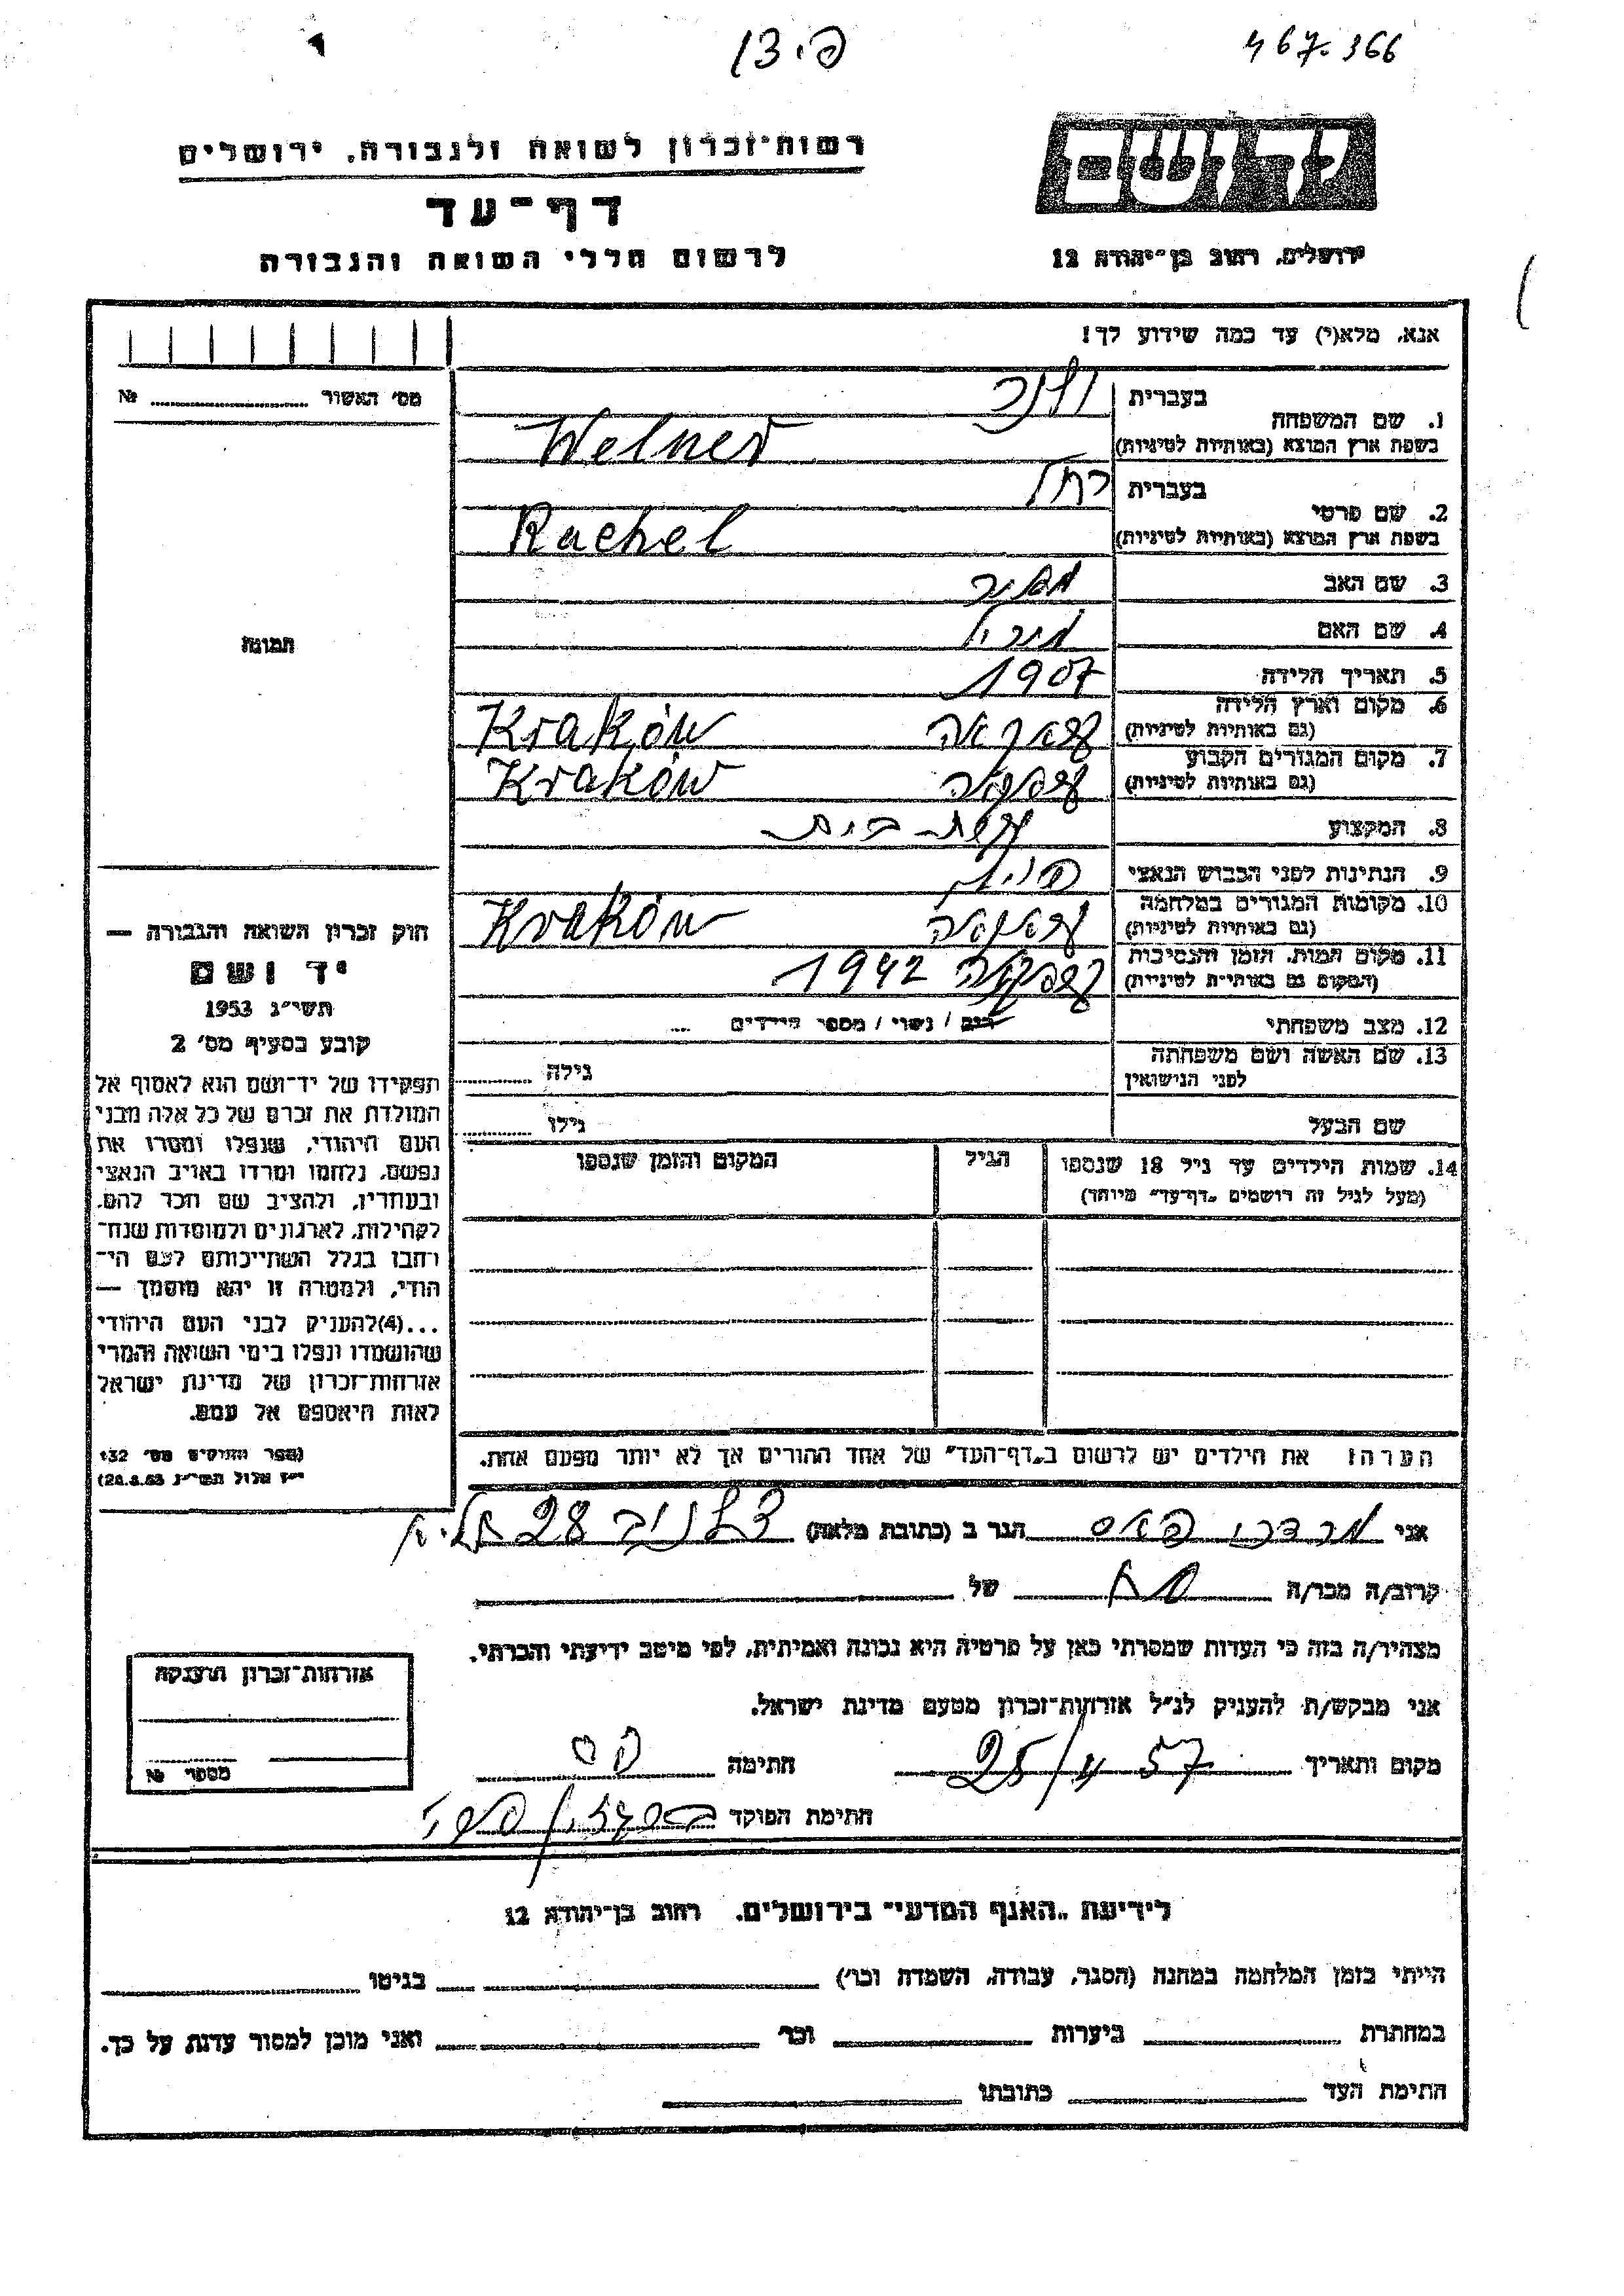 פ. 31
467.366
רשות־זכרון לשואה ולגבורה, ירושלים
דף־עד
לרשום חללי השואה והגבורה
יד ושם
ירושלים, רחוב בן־יהודה 12
אנא, מלא(י) עד כמה שידוע לך!
מס' האשור № ....................
תמונה
1. שם המשפחה
בעברית ולנר
בשפת ארץ המוצא (באותיות לטיניות) Welner
2. שם פרטי
בעברית רחל
בשפת ארץ המוצא (באותיות לטיניות) Rachel
3. שם האב מאיר
4. שם האם
5. תאריך הלידה 1907
6. מקום וארץ הלידה
(גם באותיות לטיניות) קראקא Kraków
7. מקום המגורים הקבוע
(גם באותיות לטיניות) קראקא Kraków
8. המקצוע עקרת בית
9. הנתינות לפני הכבוש הנאצי פולין
10. מקומות המגורים במלחמה
(גם באותיות לטיניות) קראקא Kraków
11. מקום המות, הזמן והנסיבות
(המקום גם באותיות לטיניות) קראקא 1942
12. מצב משפחתי רווק / נשוי / מספר הילדים ...
13. שם האשה ושם משפחתה
לפני הנישואין גילה
שם הבעל גילו
14. שמות הילדים עד גיל 18 שנספו הגיל המקום והזמן שנספו
(מעל לגיל זה רושמים „דף־עד" מיוחד)
הערה: את הילדים יש לרשום ב„דף־העד" של אחד ההורים אך לא יותר מפעם אחת.
חוק זכרון השואה והגבורה —
יד ושם
תשי"ג 1953
קובע בסעיף מס' 2
תפקידו של יד־ושם הוא לאסוף אל
המולדת את זכרם של כל אלה מבני
העם היהודי, שנפלו ומסרו את
נפשם, נלחמו ומרדו באויב הנאצי
ובעוזריו, ולהציב שם וזכר להם,
לקהילות, לארגונים ולמוסדות שנח־
רבו בגלל השתייכותם לעם הי־
הודי, ולמטרה זו יהא מוסמך —
...(4)להעניק לבני העם היהודי
שהושמדו ונפלו בימי השואה והמרי
אזרחות־זכרון של מדינת ישראל
לאות היאספם אל עמם.
(ספר החוקים מס' 132
י"ז אלול תשי"ג 28.8.53)
אני מרדכי הגר ב (כתובת מלאה) 28
קרוב/ה מכר/ה של
מצהיר/ה בזה כי העדות שמסרתי כאן על פרטיה היא נכונה ואמיתית, לפי מיטב ידיעתי והכרתי.
אני מבקש/ת להעניק לנ"ל אזרחות־זכרון מטעם מדינת ישראל.
מקום ותאריך 25/4 57 חתימה
חתימת הפוקד
אזרחות־זכרון הוענקה
מספר №
לידיעת „האגף המדעי" בירושלים, רחוב בן־יהודה 12
הייתי בזמן המלחמה במחנה (הסגר, עבודה, השמדה וכו') בגיטו
במחתרת ביערות וכו' ואני מוכן למסור עדות על כך.
חתימת העד כתובתו